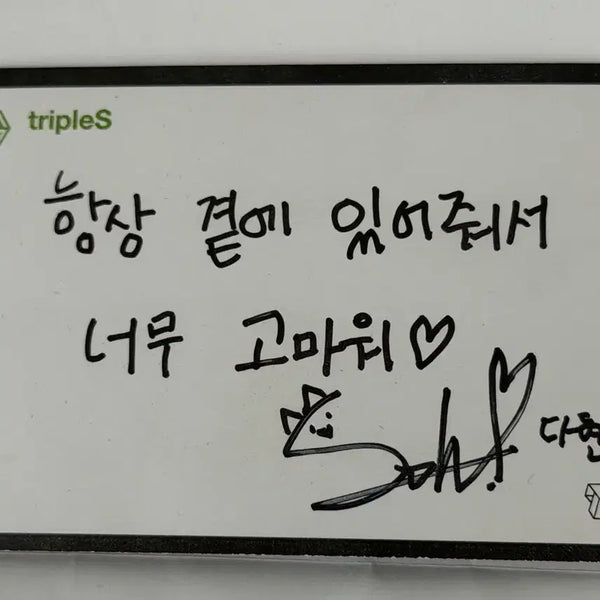 tripleS
항상 곁에 있어줘서
너무 고마워♡
다현